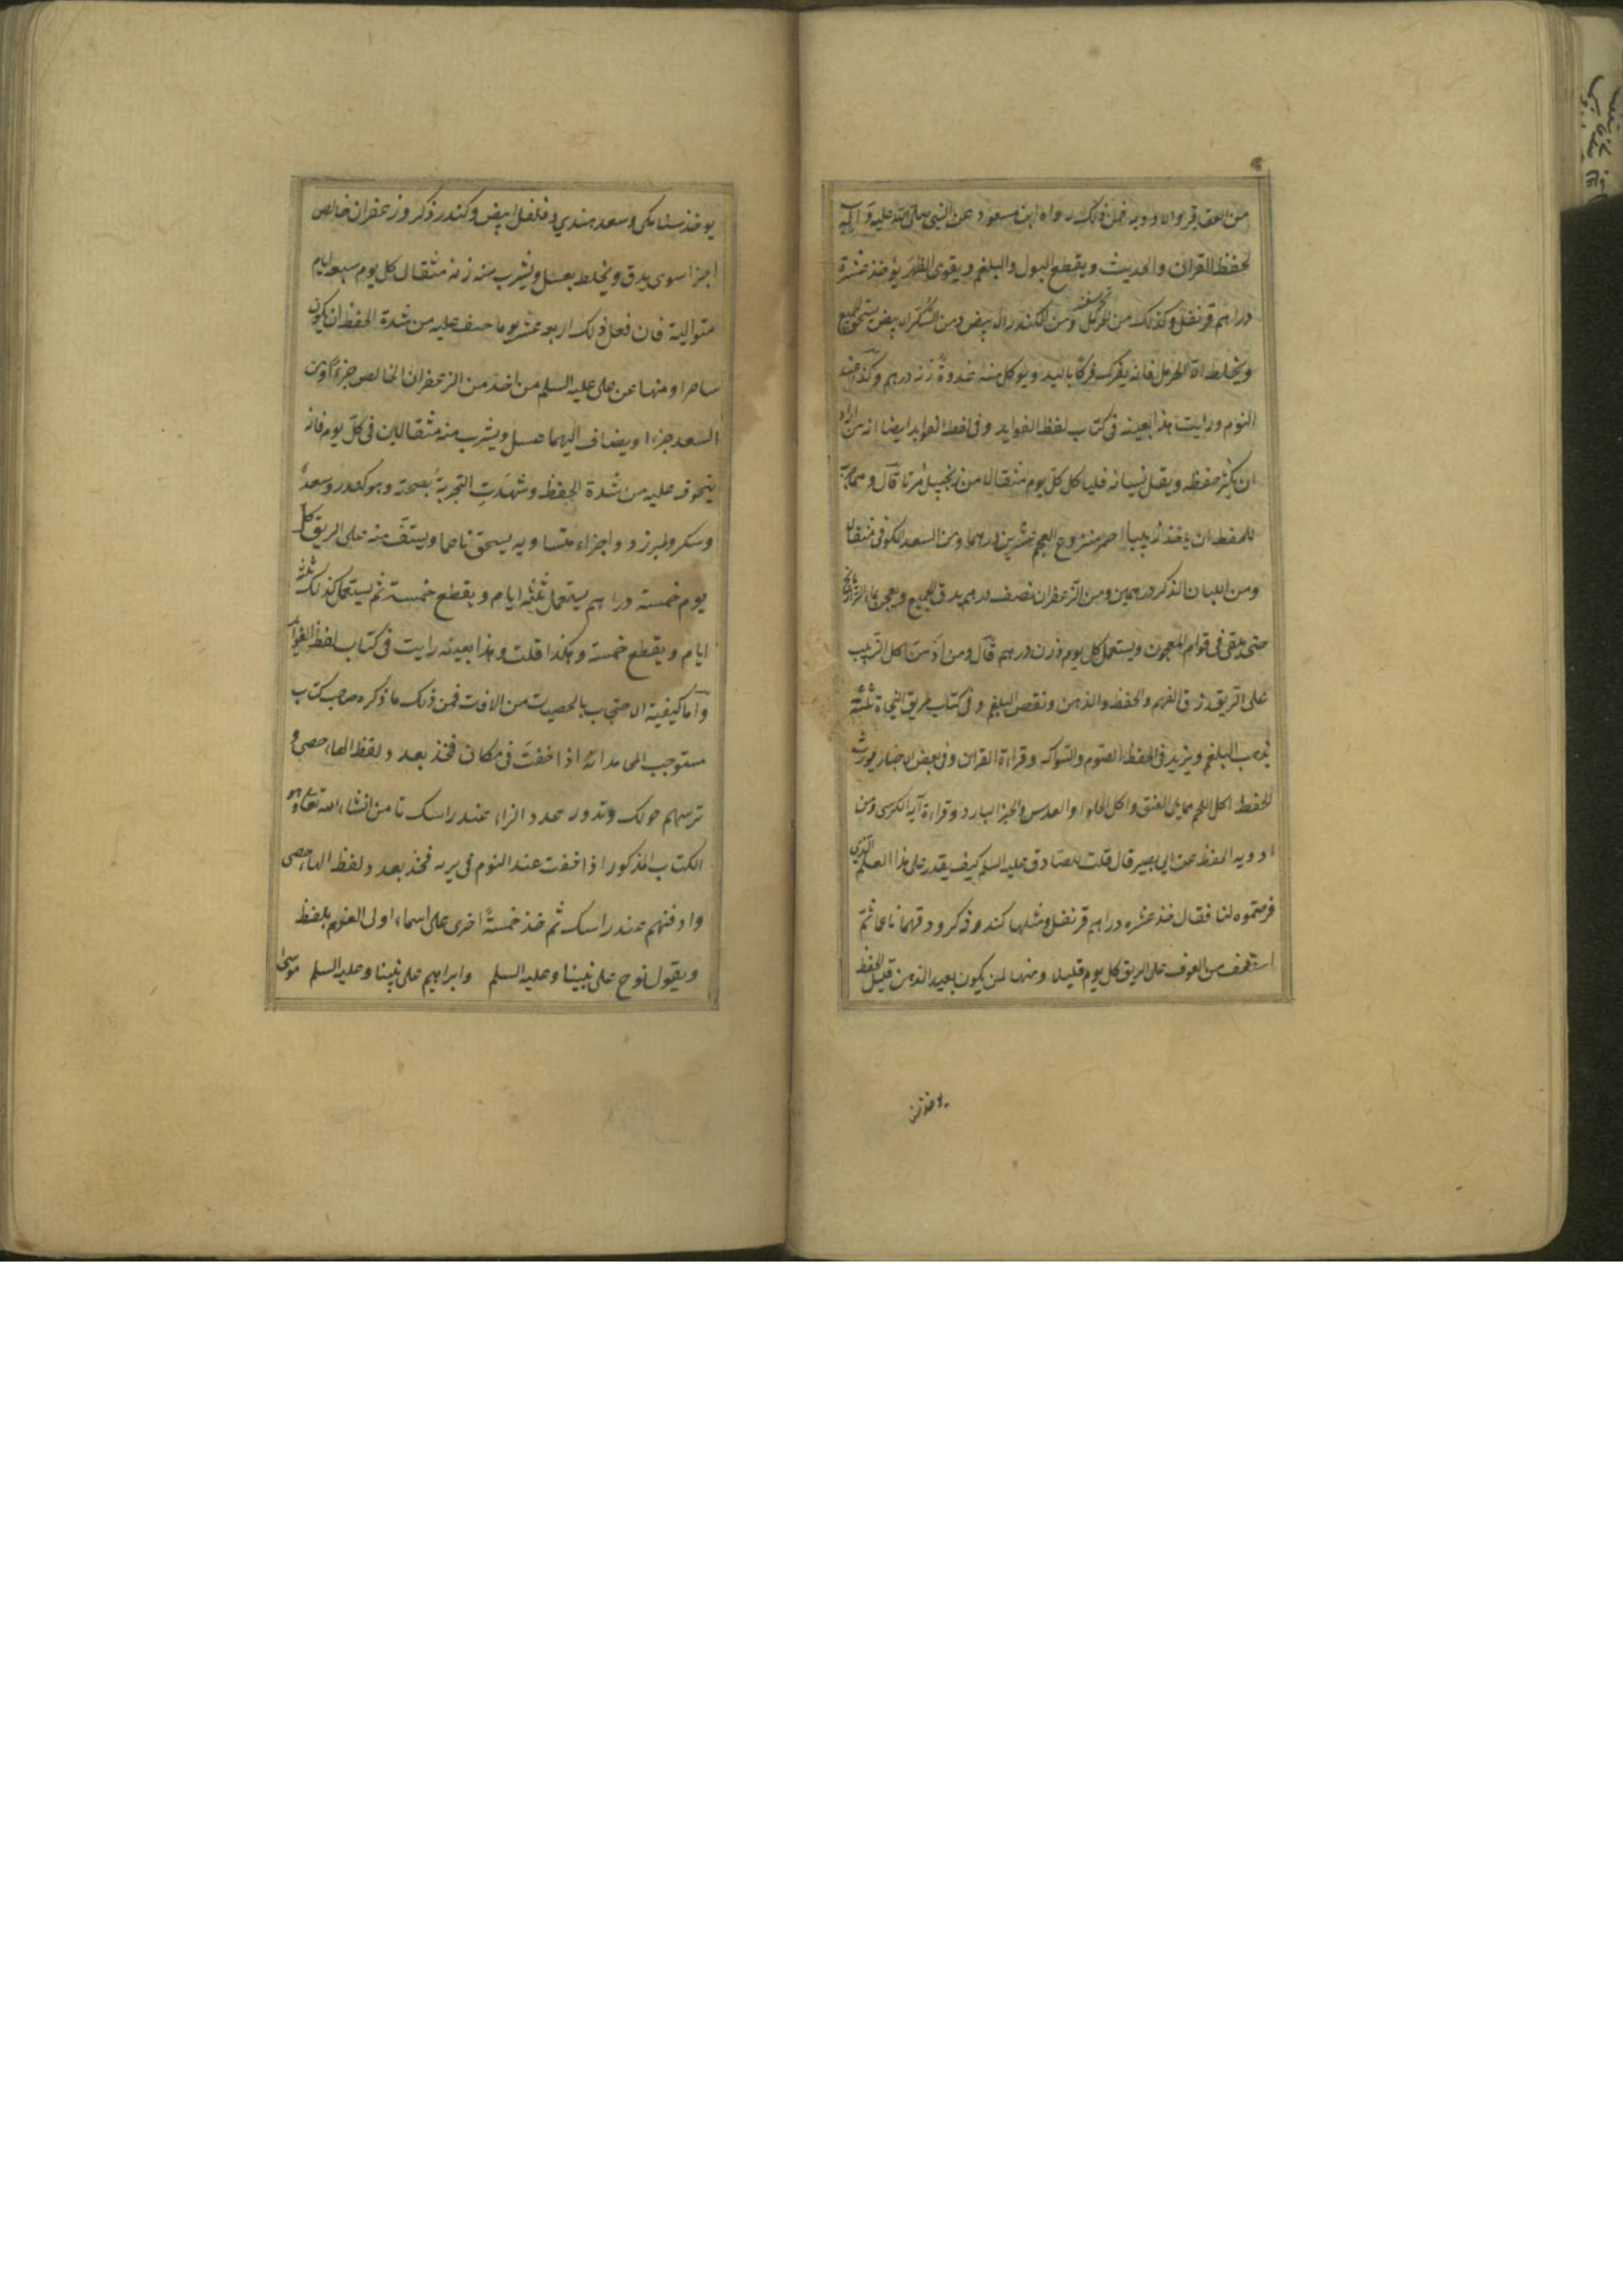 من العقاقير والادويه فمن ذلك رواه ابن مسعود عن النبي صلى الله عليه وآله
لحفظ القران والحديث ويقطع البول والبلغم ويقوى الظهر يؤخذ عشرة
دراهم قرنفل وكذلك من الحرمل ومن الكندر الابيض ومن السكر الابيض يسحق الجميع
ويخلط الا الحرمل فانه يفرك فركا باليد ويوكل منه غدوة زنه درهم وكذا عند
النوم ورايت هذا بعينه فى كتاب لفظ الفوايد وفى لفظ الفوايد ايضا ان من اراد
ان يكثر حفظه ويقل نسيانه فلياكل كل يوم مثقالا من زنجبيل مربا قال ومما جرب
للحفظ ان ياخذ زبيبا احمر منزوع العجم عشرين درهما ومن السعد الكوفى مثقال
ومن اللبان الذكر درهمين ومن الزعفران نصف درهم يدق الجميع ويعجن بماء الرازيانج
حتى يبقى فى قوام المعجون ويستعمل كل يوم وزن درهم قال ومن ادمن اكل الزبيب
على الريق رزق الفهم والحفظ والذهن ونقص البلغم وفى كتاب طريق النجاة ثلثة
يذهب البلغم ويزيد فى الحفظ الصوم والسواك وقراءة القران وفى بعض الاخبار يورث
الحفظ اكل اللحم مما يلى العنق واكل الحلوا والعدس والخبز البارد وقراءة آية الكرسى ومن
ادويه الحفظ عن ابى بصير قال قلت للصادق عليه السلم كيف يقدر على هذا العلم الذى
فرضتموه لنا فقال خذ عشره دراهم قرنفل ومثلها كندر ذكر ودقهما ناعما ثم
استف من السفوف على الريق كل يوم قليلا ومنها لمن يكون بعيد الذهن قليل الحفظ
يوخذ سنا
يوخذ سنا مكى وسعد هندي وفلفل ابيض وكندر ذكر وزعفران خالص
اجزا سوى يدق ويخلط بعسل ويشرب منه زنه مثقال كل يوم سبعه ايام
متواليه فان فعل ذلك اربعه عشر يوما خيف عليه من شدة الحفظ ان يكون
ساحرا ومنها عن على عليه السلم من اخذ من الزعفران الخالص جزءا ومن
السعد جزءا ويضاف اليهما عسل ويشرب منه مثقالين فى كل يوم فانه
يتخوف عليه من شدة الحفظ وشهدت التجربة بصحته وهو كندر وسعد
وسكر طبرزد واجزاء متساويه يسحق ناعما ويستف منه على الريق كل
يوم خمسة دراهم يستعمل ثلثه ايام ويقطع خمسة ثم يستعمل كذلك ثلثه
ايام ويقطع خمسة وهكذا قلت وهذا بعينه رايت فى كتاب لفظ الفوائد
واما كيفية الاحتجاب بالحصيات من الافات فمن ذلك ما ذكره صاحب كتاب
مستوجب المحامد انه اذا خفت فى مكان فخذ بعدد لفظ الهاء حصى و
ترميهم حولك وتدور عدد الزاء عند راسك تامن انشاء الله تعالى وهو
الكتاب المذكور اذا خفت عند النوم فى بريه فخذ بعدد لفظ الهاء حصى
وادفنهم عند راسك ثم خذ خمسة اخرى على اسماء اولى العزم بلفظ
ويقول نوح على نبينا وعليه السلم وابراهيم على نبينا وعليه السلم موسى